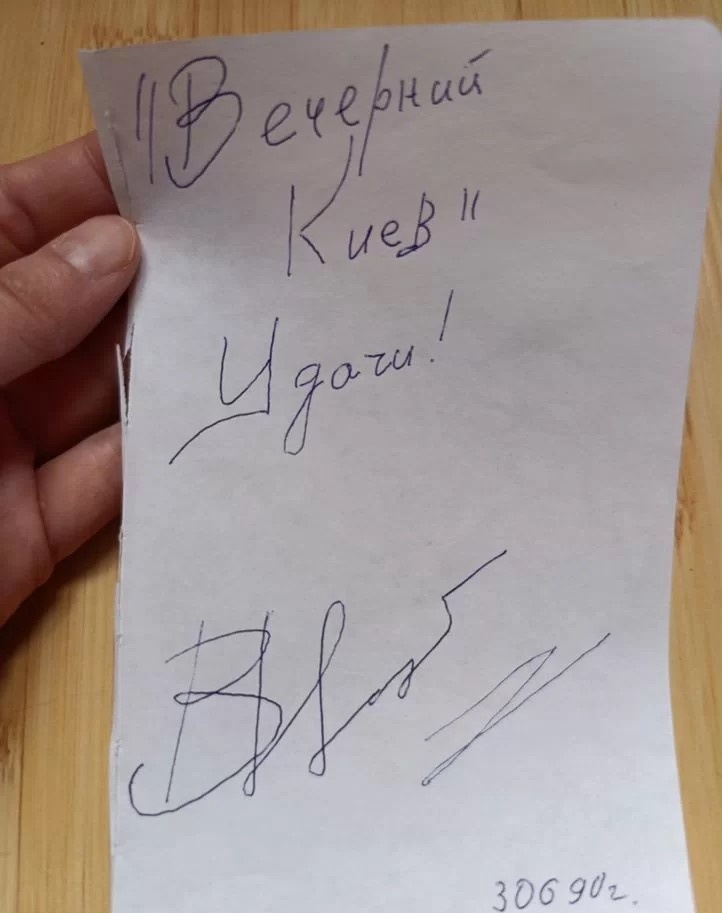 "Вечерний
Киев"
Удачи!
30690г.